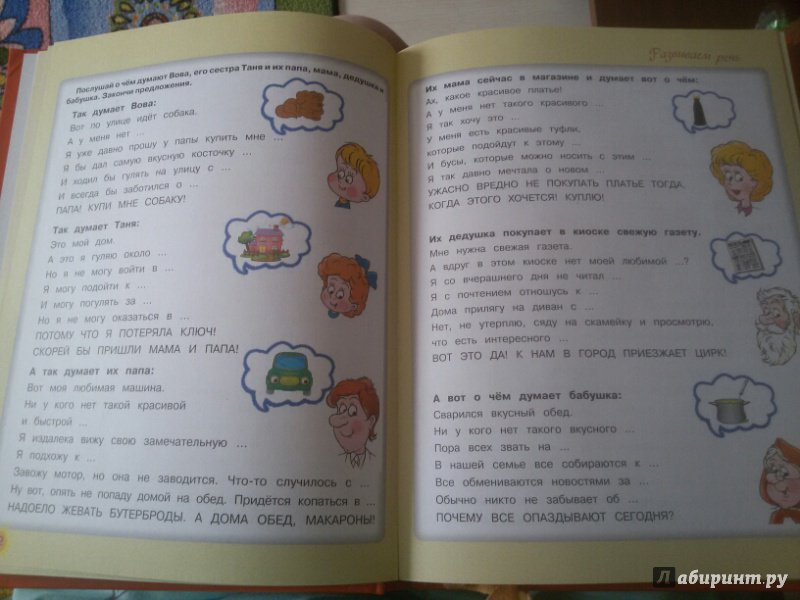 Послушай о чём думают Вова, его сестра Таня и их папа, мама, дедушка и
бабушка. Закончи предложения.
Так думает Вова:
Вот по улице идёт собака.
А у меня нет ...
Я уже давно прошу у папы купить мне ...
Я бы дал самую вкусную косточку ...
И ходил бы гулять на улицу с ...
И всегда бы заботился о ...
ПАПА! КУПИ МНЕ СОБАКУ!
Так думает Таня:
Это мой дом.
А это я гуляю около ...
Но я не могу войти в ...
Я могу подойти к ...
И могу погулять за ...
Но я не могу оказаться в ...
ПОТОМУ ЧТО Я ПОТЕРЯЛА КЛЮЧ!
СКОРЕЙ БЫ ПРИШЛИ МАМА И ПАПА!
А так думает их папа:
Вот моя любимая машина.
Ни у кого нет такой красивой
и быстрой ...
Я издалека вижу свою замечательную ...
Я подхожу к ...
Завожу мотор, но она не заводится. Что-то случилось с ...
Ну вот, опять не попаду домой на обед. Придётся копаться в ...
НАДОЕЛО ЖЕВАТЬ БУТЕРБРОДЫ. А ДОМА ОБЕД, МАКАРОНЫ!
Развиваем речь
Их мама сейчас в магазине и думает вот о чём:
Ах, какое красивое платье!
А у меня нет такого красивого ...
Я так хочу это ...
У меня есть красивые туфли,
которые подойдут к этому ...
И бусы, которые можно носить с этим ...
Я так давно мечтала о новом ...
УЖАСНО ВРЕДНО НЕ ПОКУПАТЬ ПЛАТЬЕ ТОГДА,
КОГДА ЭТОГО ХОЧЕТСЯ! КУПЛЮ!
Их дедушка покупает в киоске свежую газету.
Мне нужна свежая газета.
А вдруг в этом киоске нет моей любимой ...?
Я со вчерашнего дня не читал ...
Я с почтением отношусь к ...
Дома прилягу на диван с ...
Нет, не утерплю, сяду на скамейку и просмотрю,
что есть интересного ...
ВОТ ЭТО ДА! К НАМ В ГОРОД ПРИЕЗЖАЕТ ЦИРК!
А вот о чём думает бабушка:
Сварился вкусный обед.
Ни у кого нет такого вкусного ...
Пора всех звать на ...
В нашей семье все собираются к ...
Все обмениваются новостями за ...
Обычно никто не забывает об ...
ПОЧЕМУ ВСЕ ОПАЗДЫВАЮТ СЕГОДНЯ?
Лабиринт.ру